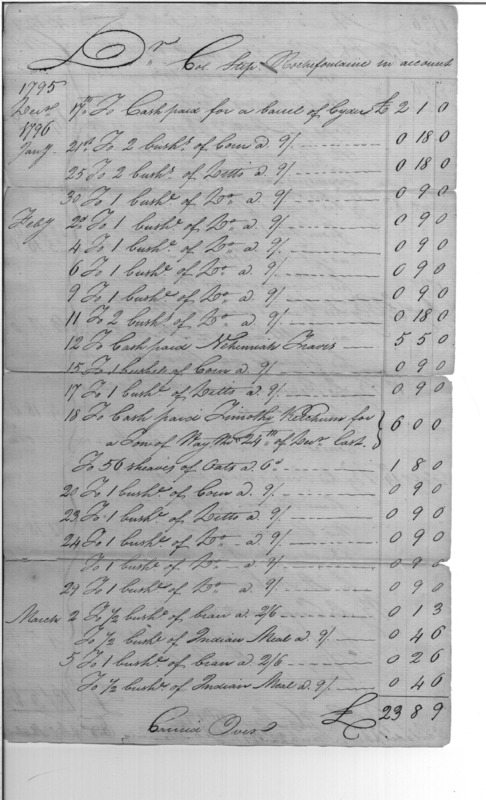 Dr. Col. Step. Rochefontaine in account
1795
Decr. 17th To Cash paid for a barrel of Cyder £ 2 1 0
1796
Jany. 21st To 2 bushs. of Corn a 9/ 0 18 0
25 To 2 bushs. of Ditto a 9/ 0 18 0
30 To 1 bushl. of Do. a 9/ 0 9 0
Feby 2d To 1 bushl. of Do. a 9/ 0 9 0
4 To 1 bushl. of Do. a 9/ 0 9 0
6 To 1 bushl. of Do. a 9/ 0 9 0
9 To 1 bushl. of Do. a 9/ 0 9 0
11 To 2 bushls. of Do. a 9/ 0 18 0
12 To Cash paid Nehemiah 5 5 0
15 To 1 bushel of Corn a 9/ 0 9 0
17 To 1 bushl. of Ditto a 9/ 0 9 0
18 To Cash paid Timothy Ketchum for
a Ton of Hay the 24th of Decr. last } 6 0 0
To 56 sheaves of Oats a 6d 1 8 0
20 To 1 bushl. of Corn a 9/ 0 9 0
23 To 1 bushl. of Ditto a 9/ 0 9 0
24 To 1 bushl. of Do. a 9/ 0 9 0
To 1 bushl. of Do. a 9/ 0 9 0
29 To 1 bushl. of Do. a 9/ 0 9 0
March 2 To 1/2 bushl. of bran a 2/6 0 1 3
To 1/2 bushl. of Indian Meal a 9/ 0 4 6
5 To 1 bushl. of bran a 2/6 0 2 6
To 1/2 bushl. of Indian Meal a 9/ 0 4 6
£ 23 8 9
Carried Over